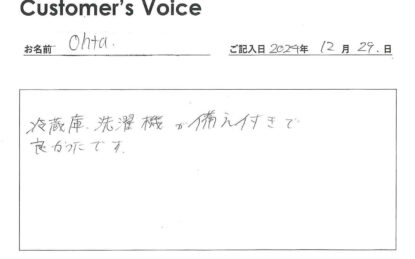 Customer's Voice
お名前 Ohta. ご記入日 2024年 12月 29.日
冷蔵庫、洗濯機が備え付きで
良かったです。